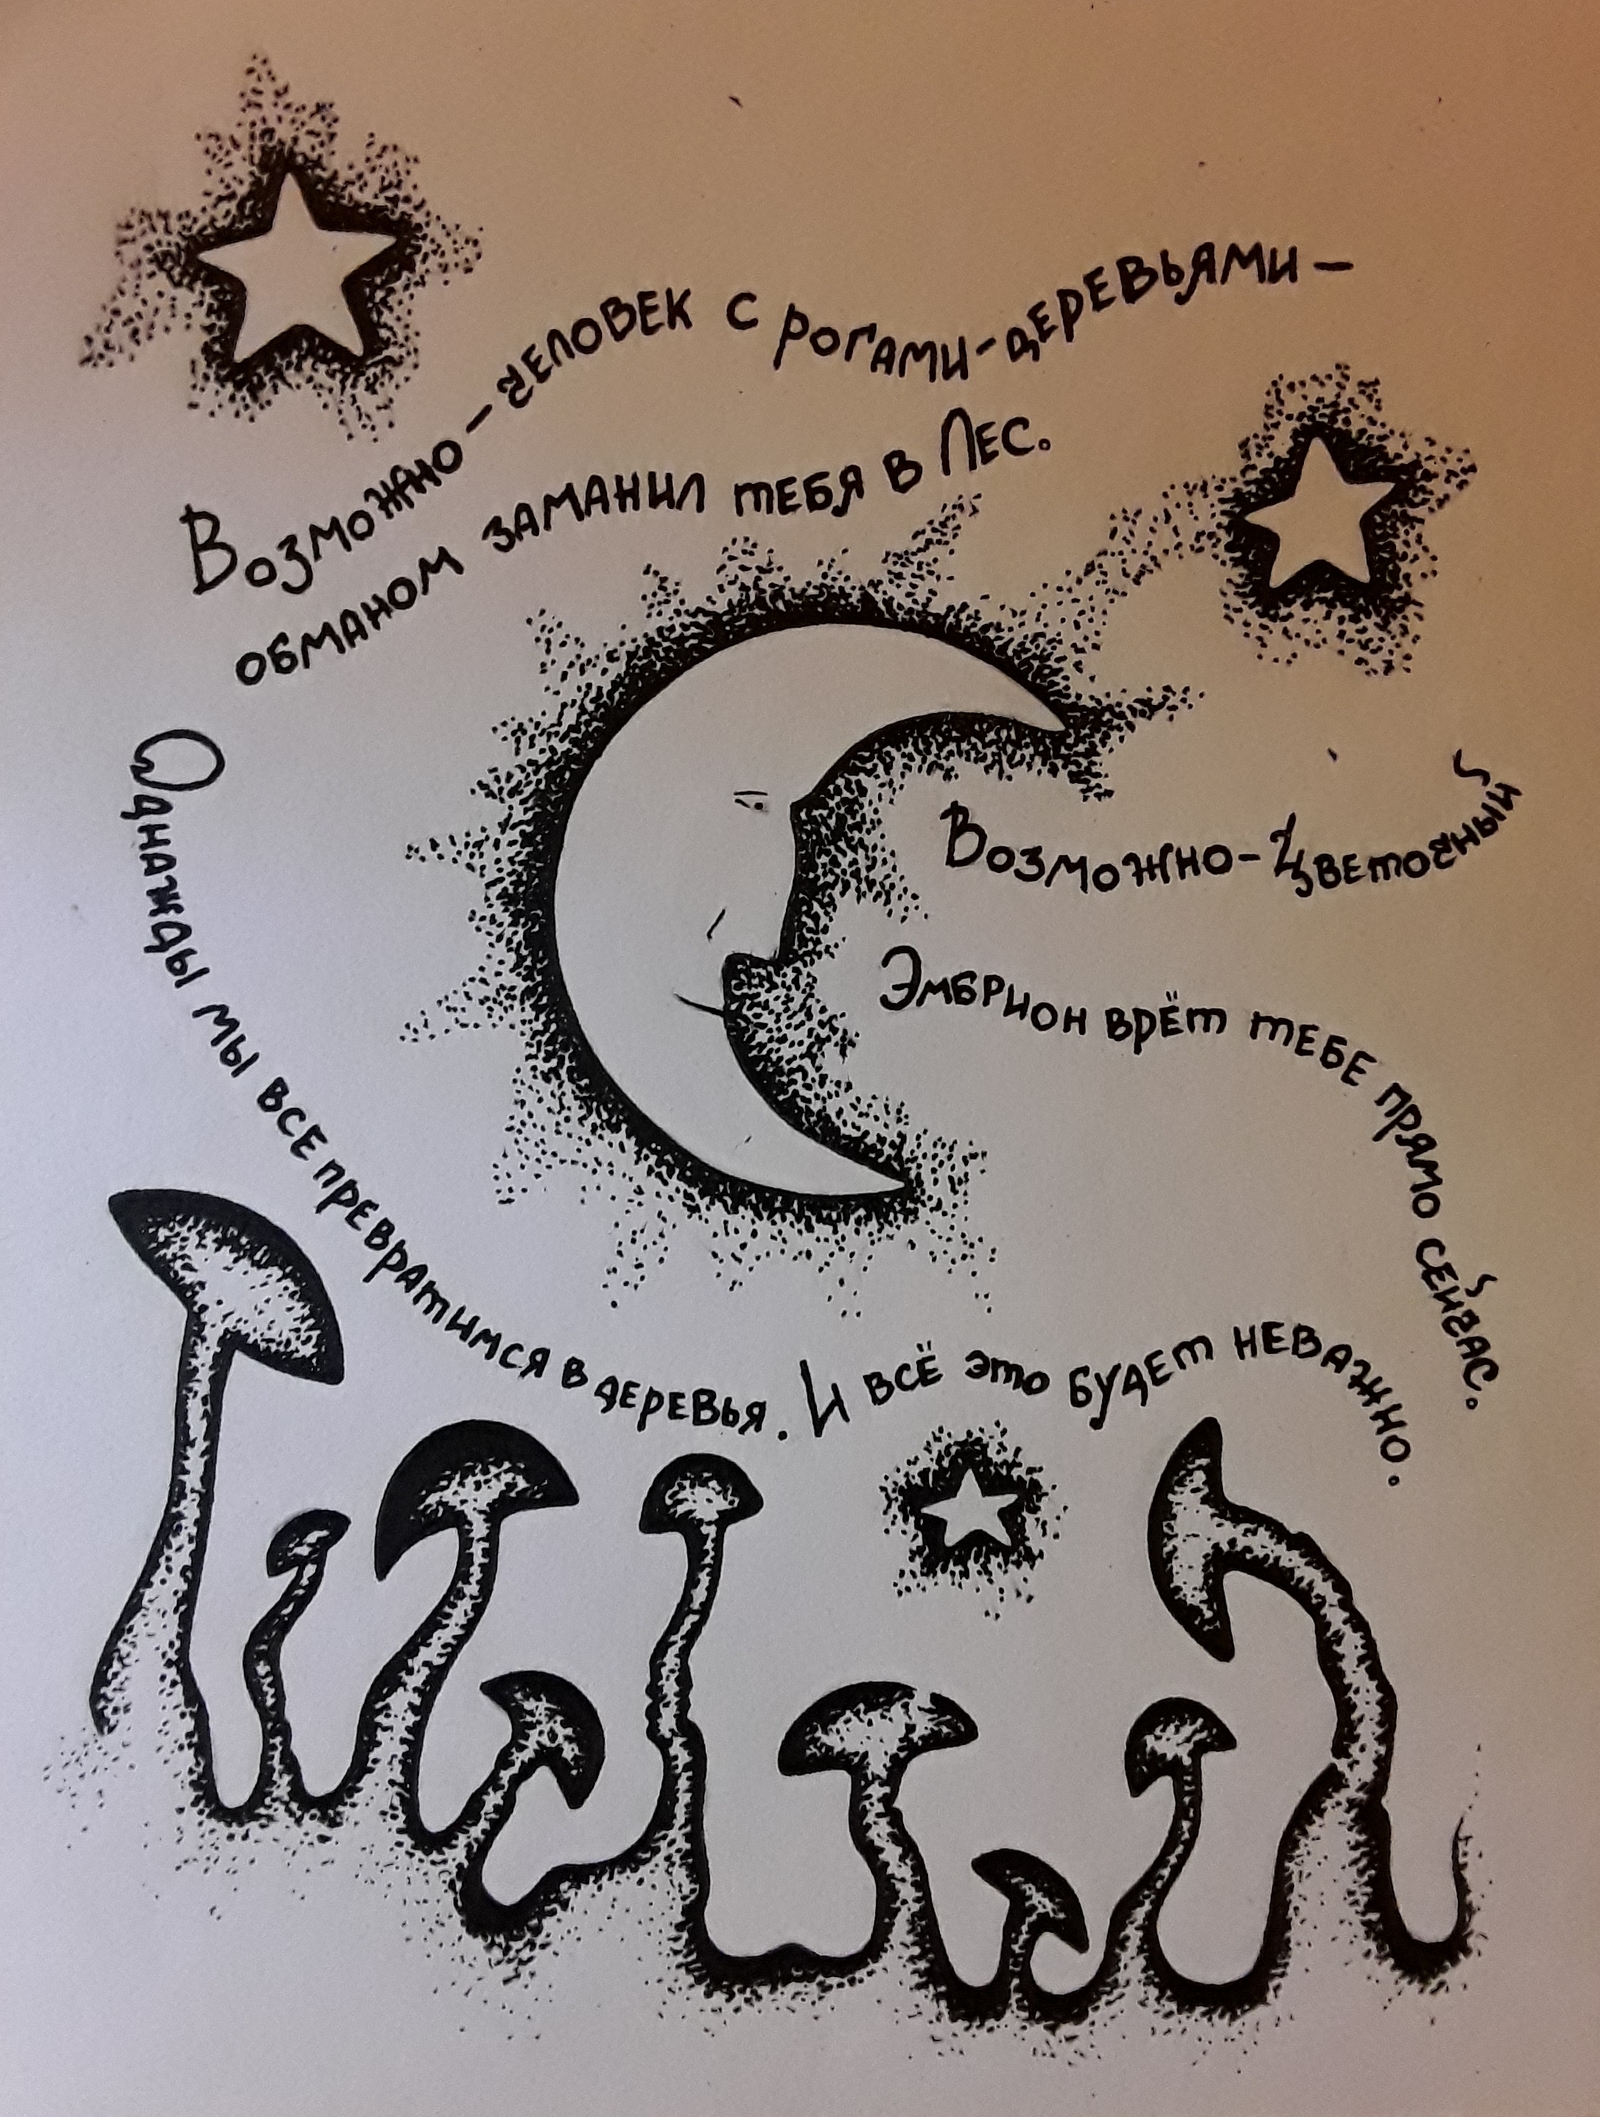 Возможно – человек с рогами-деревьями –
обманом заманил тебя в Лес.
Возможно – Цветочный
Эмбрион врёт тебе прямо сейчас.
Однажды мы все превратимся в деревья. И всё это будет неважно.